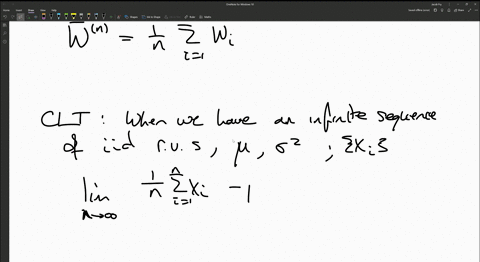 W̅⁽ⁿ⁾ = 1/n Σ_{i=1} W_i
CLT : When we have an infinite sequence
of iid r.v.s, μ, σ² ; {X_i}
lim_{n→∞} 1/n Σ_{i=1}^{n} X_i -1